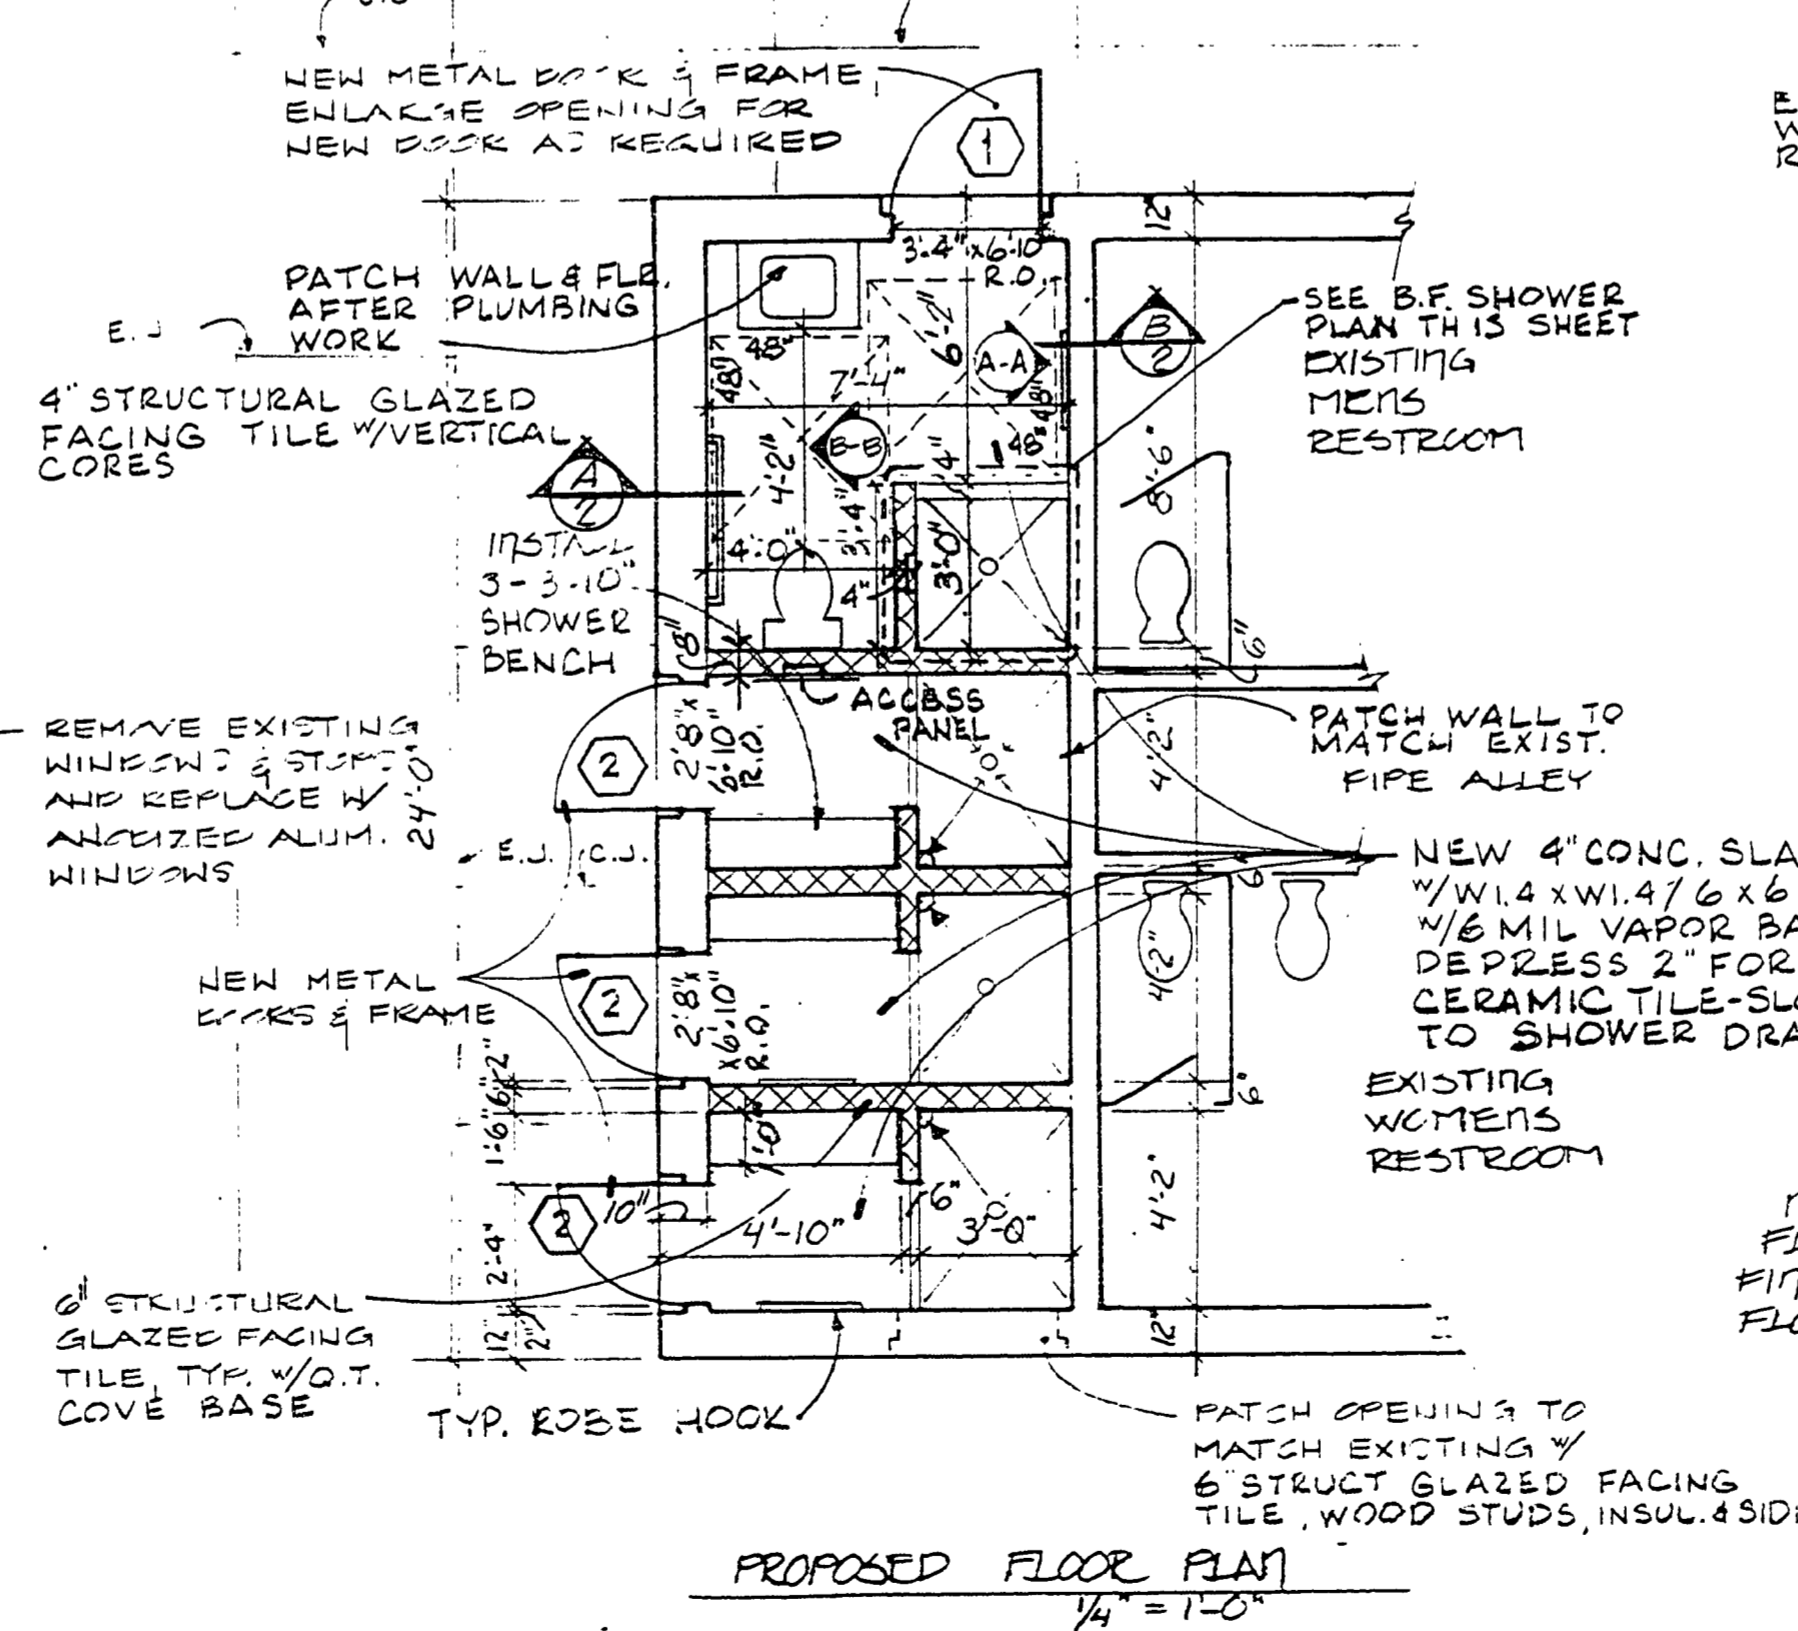 NEW METAL DOOR & FRAME,
ENLARGE OPENING FOR
NEW DOOR AS REQUIRED
1
12"
3'-4" x 6'-10"
R.O.
PATCH WALL & FLR.
AFTER PLUMBING
WORK
E.J
4" STRUCTURAL GLAZED
FACING TILE W/VERTICAL
CORES
SEE B.F. SHOWER
PLAN THIS SHEET
EXISTING
MENS
RESTROOM
48"
48"
7'-4"
6'-2"
A-A
B
2
48"
48"
B-B
4"
4'-2"
8'-6"
A
2
INSTALL
3-3'-10"
SHOWER
BENCH
4'-0"
3'-4"
4"
3'-0"
8"
6"
ACCESS
PANEL
REMOVE EXISTING
WINDOWS & STOPS
AND REPLACE W/
ANODIZED ALUM.
WINDOWS
24'-0"
2
2'-8" x
6'-10"
R.O.
4'-2"
PATCH WALL TO
MATCH EXIST.
PIPE ALLEY
E.J. C.J.
6"
NEW 4" CONC. SLA
W/W1.4 x W1.4 / 6 x 6
W/6 MIL VAPOR BA
DEPRESS 2" FOR
CERAMIC TILE-SLO
TO SHOWER DRA
NEW METAL
DOORS & FRAME
2
2'-8" x
x6'-10"
R.O.
4'-2"
EXISTING
WOMENS
RESTROOM
2"
6"
1'-6"
1'-0"
6"
2
10"
4'-10"
6"
3'-0"
4'-2"
2'-4"
12"
2"
12"
6" STRUCTURAL
GLAZED FACING
TILE, TYP. W/Q.T.
COVE BASE
TYP. ROBE HOOK
PATCH OPENING TO
MATCH EXISTING W/
6" STRUCT GLAZED FACING
TILE, WOOD STUDS, INSUL. & SIDI
E
W
R
FI
FIN
FLO
PROPOSED FLOOR PLAN
1/4" = 1'-0"